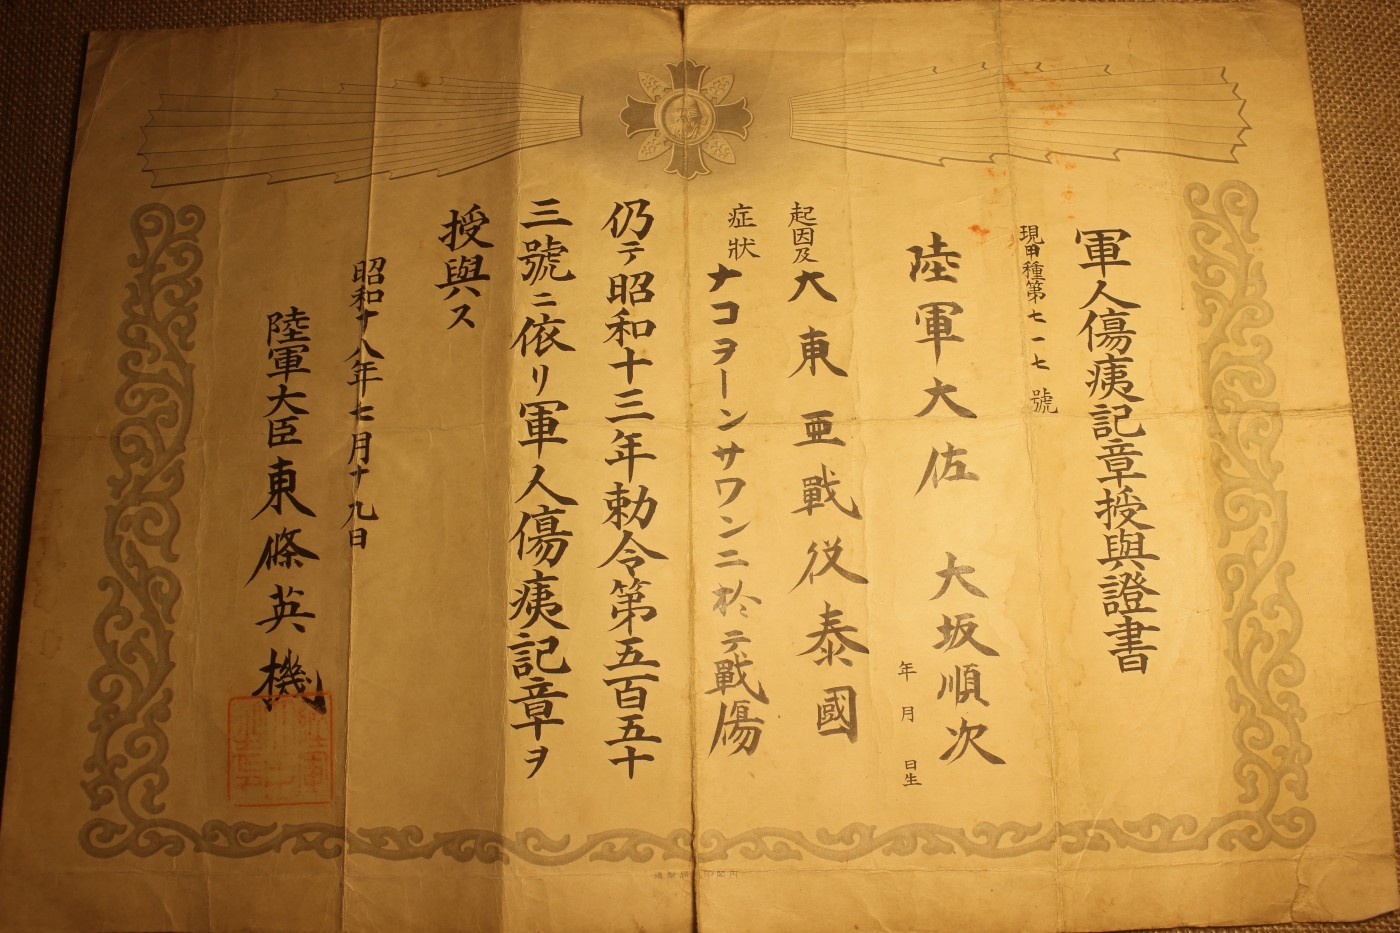 軍人傷痍記章授與證書
現甲種第七一七號
陸軍大佐 大坂順次
年月日生
起因及症狀
大東亜戰役泰國
ナコヲーンサワンニ於テ戰傷
仍テ昭和十三年勅令第五百五十
三號ニ依リ軍人傷痍記章ヲ
授與ス
昭和十八年七月十九日
陸軍大臣東條英機